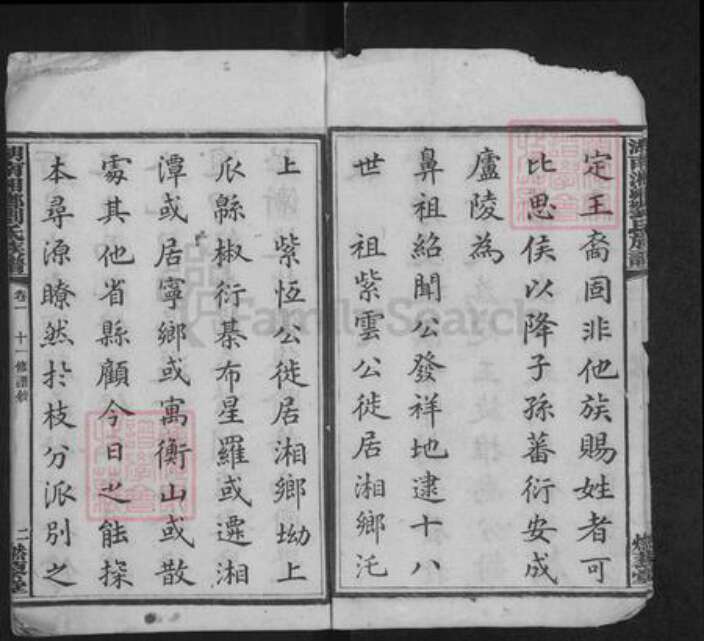 定王裔固非他族賜姓者可
比思侯以降子孫蕃衍安成
廬陵為
鼻祖紹聞公發祥地逮十八
世 祖紫雲公徙居湘鄉沱
上 紫恆公徙居湘鄉坳上
瓜緜椒衍棊布星羅或遷湘
潭或居寧鄉或寓衡山或散
處其他省縣顧今日之能探
本尋源瞭然扵枝分派別之
卷一 十一修譜敘
二
FamilySearch